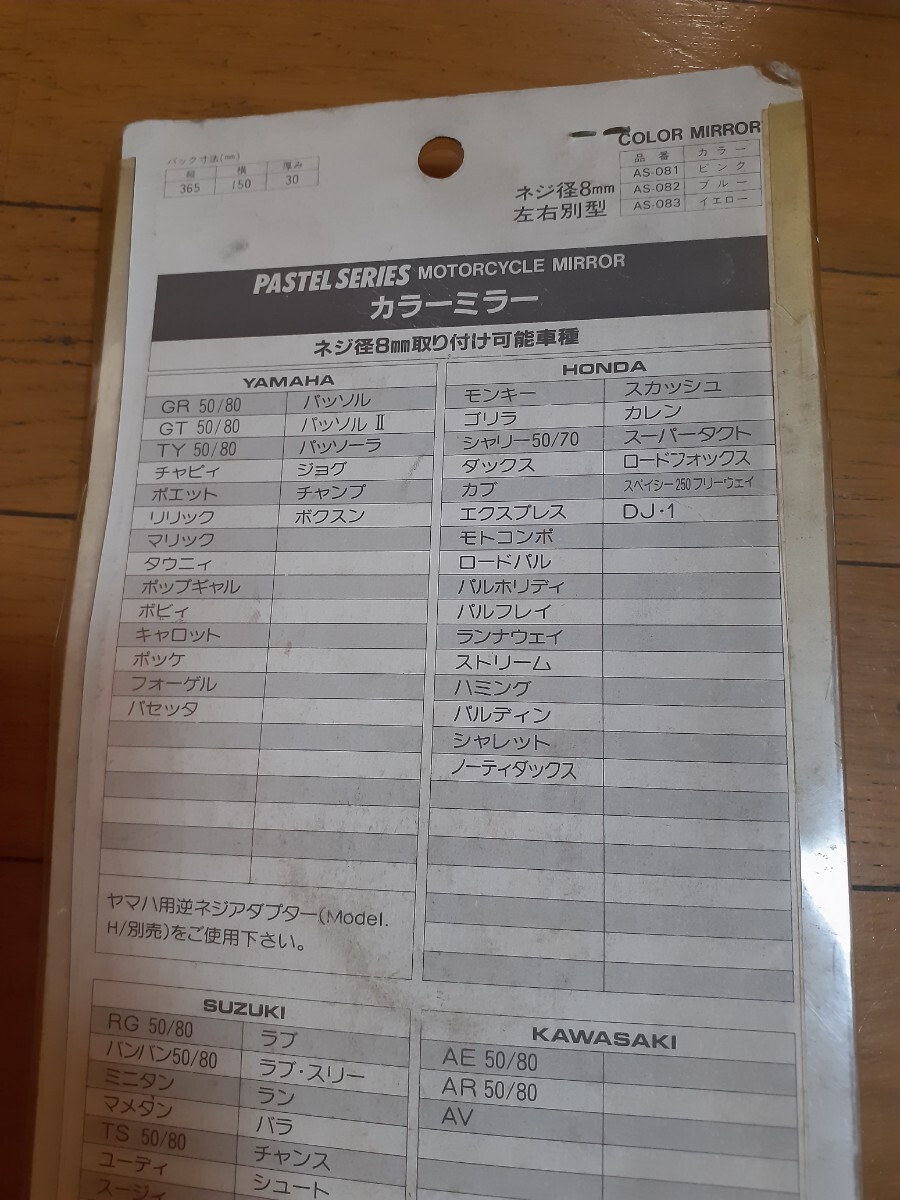 パック寸法(mm)
縦 横 厚み
365 150 30
COLOR MIRROR
品番 カラー
AS-081 ピンク
AS-082 ブルー
AS-083 イエロー
ネジ径8mm
左右別型
PASTEL SERIES MOTORCYCLE MIRROR
カラーミラー
ネジ径8mm取り付け可能車種
YAMAHA
GR 50/80 パッソル
GT 50/80 パッソル II
TY 50/80 パッソーラ
チャピィ ジョグ
ポエット チャンプ
リリック ボクスン
マリック
タウニィ
ポップギャル
ボビィ
キャロット
ポッケ
フォーゲル
パセッタ
ヤマハ用逆ネジアダプター(Model.
H/別売)をご使用下さい。
HONDA
モンキー スカッシュ
ゴリラ カレン
シャリー50/70 スーパータクト
ダックス ロードフォックス
カブ スペイシー250フリーウェイ
エクスプレス DJ・1
モトコンポ
ロードパル
パルホリディ
パルフレイ
ランナウェイ
ストリーム
ハミング
パルディン
シャレット
ノーティダックス
SUZUKI
RG 50/80 ラブ
バンバン50/80 ラブ・スリー
ミニタン ラン
マメタン パラ
TS 50/80 チャンス
ユーディ シュート
スージィ
KAWASAKI
AE 50/80
AR 50/80
AV